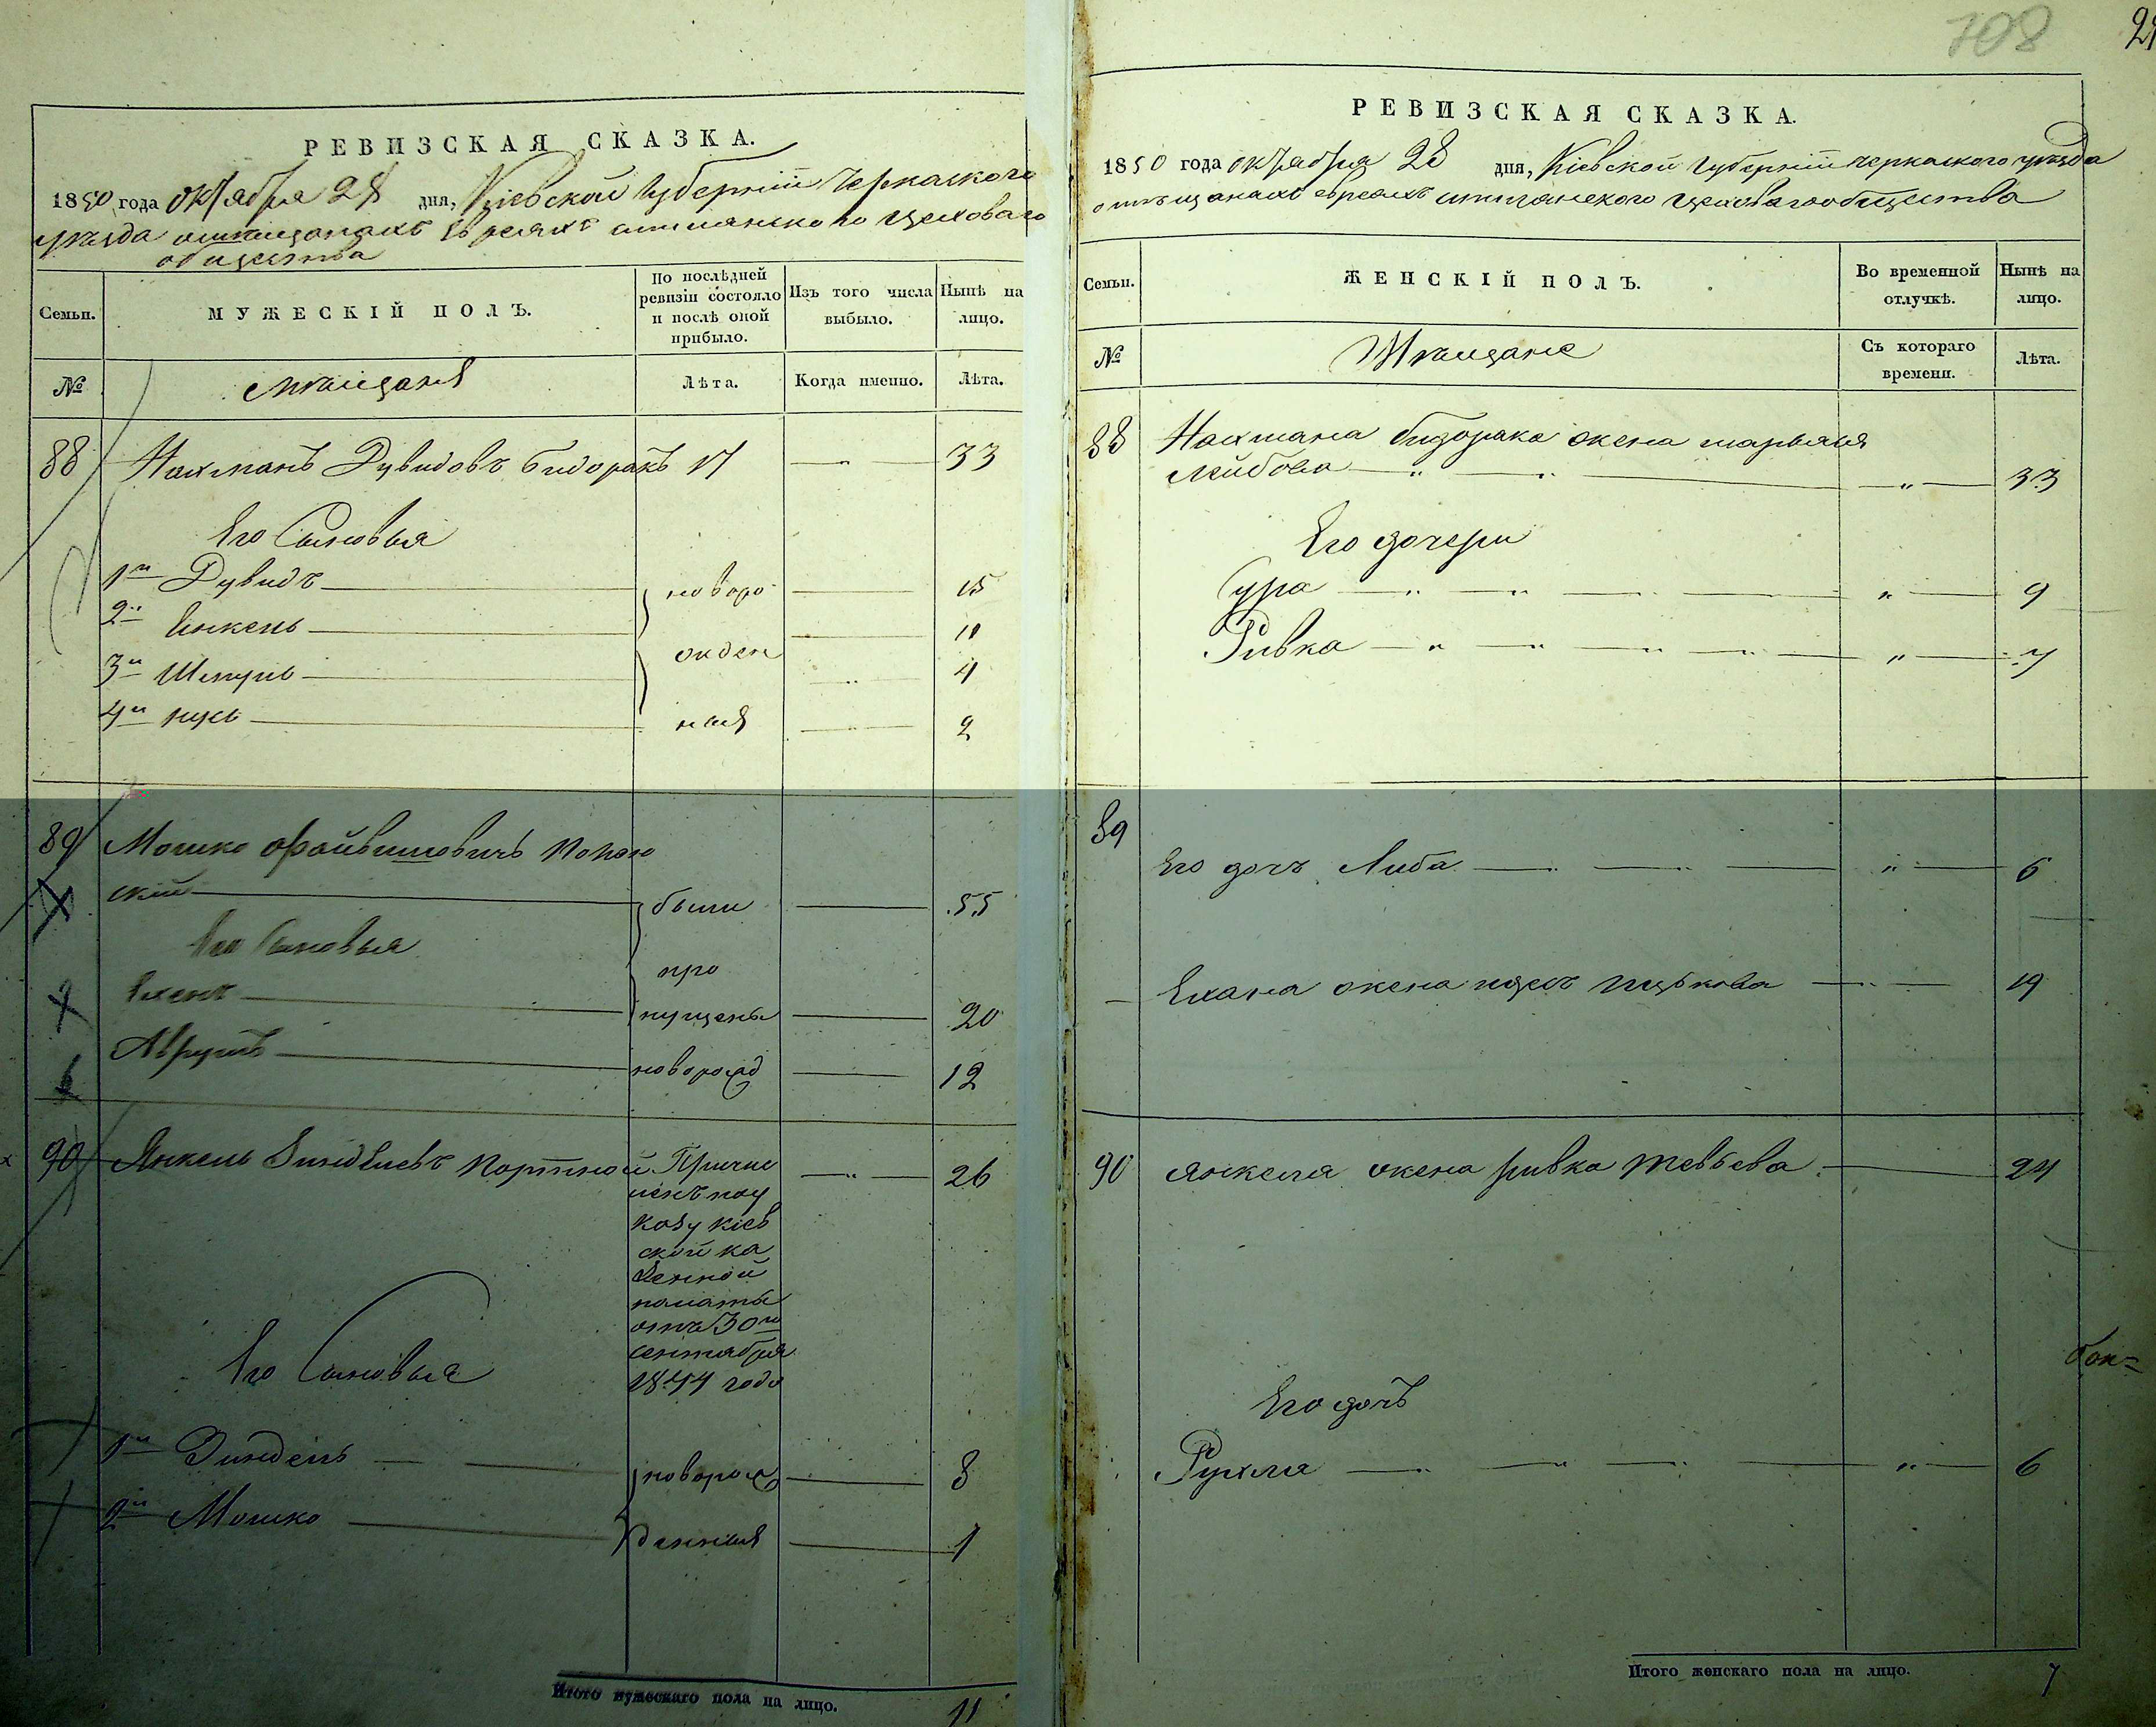 708
РЕВИЗСКАЯ СКАЗКА.
1850 года октября 28 дня, Кіевской Губерніи Черкаского
уѣзда омѣщанахъ Евреяхъ цеховаго
общества
Семьи.
МУЖЕСКІЙ ПОЛЪ.
По послѣдней
ревизіи состояло
и послѣ оной
прибыло.
Изъ того числа
выбыло.
Нынѣ на
лицо.
№
Мѣщане
Лѣта.
Когда именно.
Лѣта.
88 Нахманъ Дувидовъ Бидоракъ 17 33
Его Сыновья
1й Дувидъ новоро 15
2й Янкель 11
ожден
3й Шмуль 4
4й ныя 2
89 Мошко Файвишовичъ
скій были 55
Его Сыновья
про
пущены 20
Аврумъ новорожд 12
90 Янкель Портной Причис 26
ленъ поу
казу кіев
ской ка
зенной
палаты
отъ 30го
сентября
1844 года
Его Сыновья
1й Зиндель новорож 8
2й Мошко денныя 1
Итого мужескаго пола на лицо. 11
РЕВИЗСКАЯ СКАЗКА.
1850 года октября 28 дня, Кіевской Губерніи черкаского уѣзда
омѣщанахъ евреяхъ цеховагообщества
Семьи.
ЖЕНСКІЙ ПОЛЪ.
Во временной
отлучкѣ.
Нынѣ на
лицо.
№
Мѣщане
Съ котораго
времени.
Лѣта.
88 Нахмана бидорака жена марьяся
Лейбова " 33
Его дочери
Сура " 9
Ривка " 7
89
Его дочъ Либа " 6
Ехана жена ицькова 19
90 Янкеля жена ривка тевьева 24
Его дочъ
Рухля " 6
Итого женскаго пола на лицо. 7